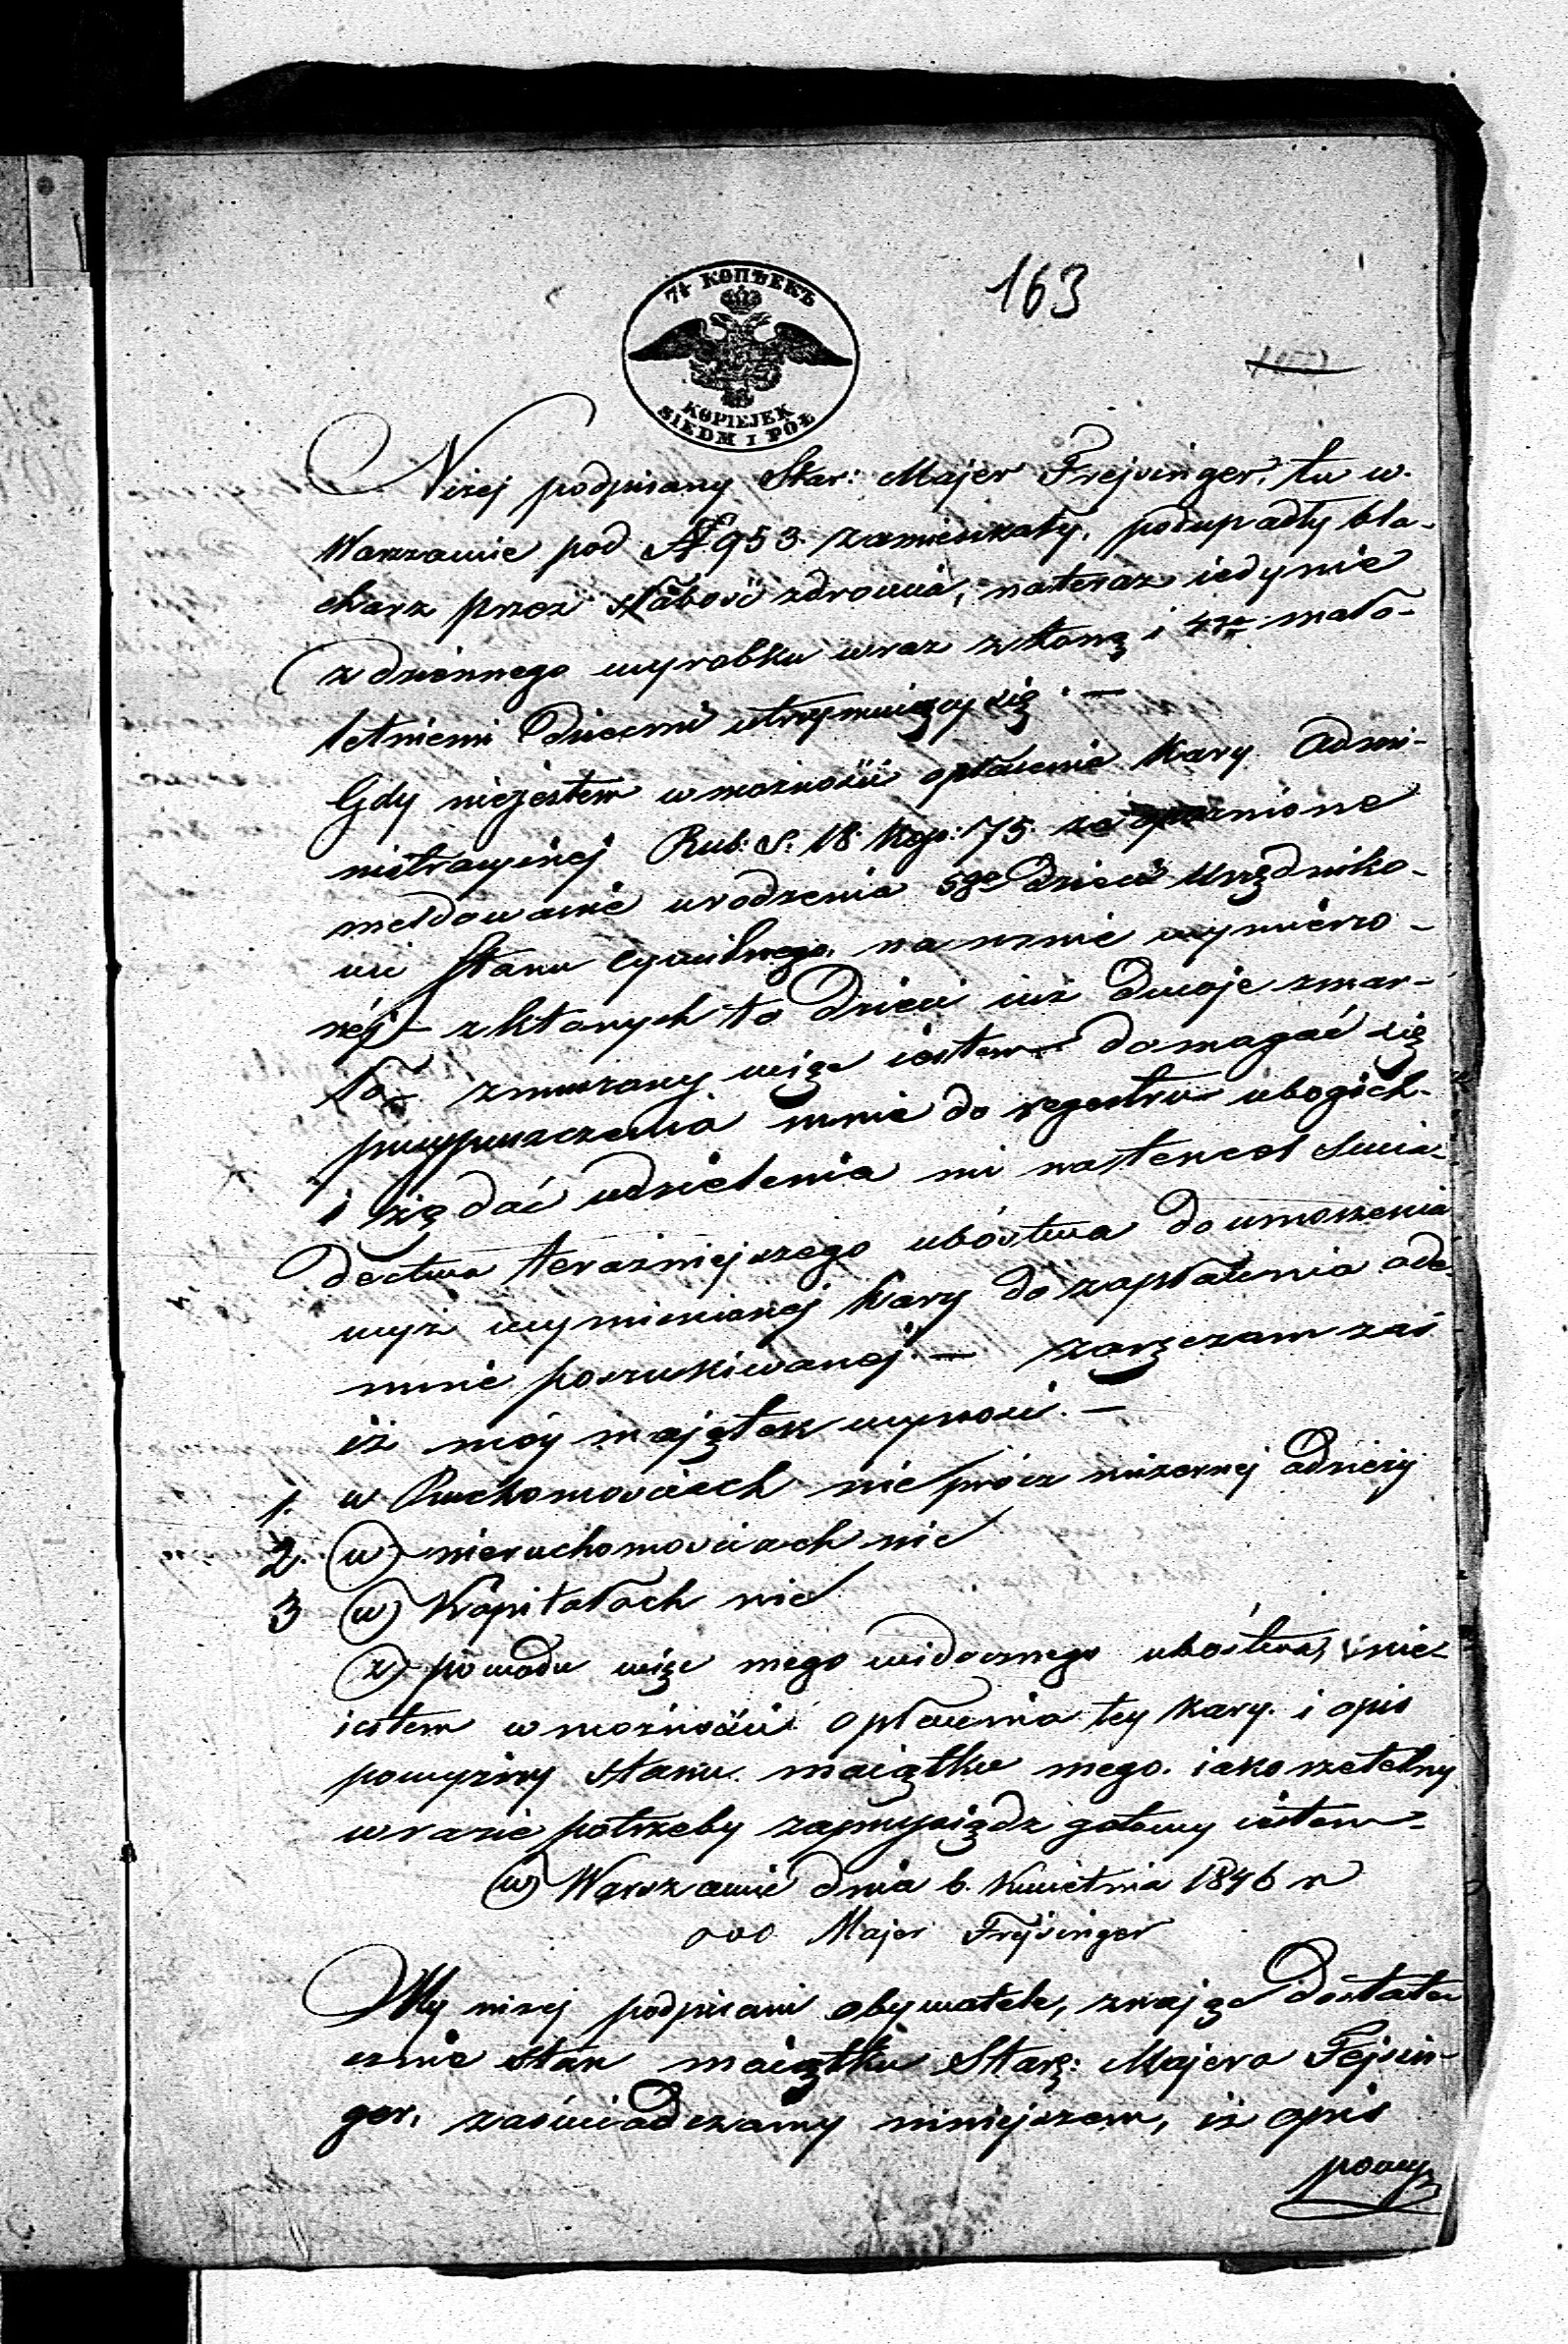 7½ КОПѢЕКЪ
KOPIEJEK
SIEDM I PÓŁ
163
Niżej podpisany Star: Majer Frejsinger, tu w.
Warszawie pod № 953. zamieszkały, podupadły bla-
charz przez słabość zdrowia, nateraz iedynie
z dziennego wyrobku wraz z żoną i 4rg mało-
letniemi dziećmi utrzymuięcy się. —
Gdy niejestem w możności opłacenia kary Admi-
nistracyinej Rub. S: 18 Kop: 75. za opoznione
meldowanie urodzenia 5ga dzieci Urzędniko-
wi Stanu Cywilnego. na mnie wymierzo-
néj — z których to dzieci iuż dwoje zmar-
ło — zmuszony więc iestem domagać się
przypuszczenia mnie do regestru ubogich
i żądać udzielenia mi na stencel świa-
dectwa teraźniejszego ubóstwa do umorzenia
wyż wymienionej kary do zapłacenia ode-
mnie poszukiwanej. — zaręczam zaś
iż móy majątek wynosi. —
1. w Ruchomościach nic prócz mizernej odzieży
2. w nieruchomościach nic
3 w Kapitałach nic
z powodu więc mego widocznego ubóstwa, nie-
iestem w możności opłacenia tey kary. i opis
powyższy stanu maiątku mego. iako rzetelny
w razie potrzeby zaprzysiądz gotowy iestem -
w Warszawie dnia 6. Kwietnia 1846 r
ooo Majer Frejsinger
My niżej podpisani obywatele, znając dostate-
cznie stan maiątku Star: Majera Fejsin-
ger. zaświadczamy niniejszem, iż opis
powyż